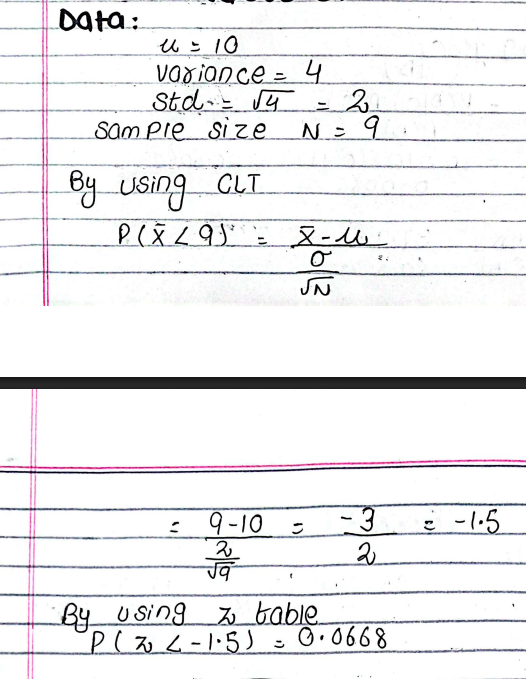 Data:
u = 10
variance = 4
Std. = √4 = 2
Sample size N = 9
By using CLT
P(x̄ < 9) = x̄ - u / σ / √N
= 9-10 / 2 / √9 = -3 / 2 = -1.5
By using z table
P(z < -1.5) = 0.0668